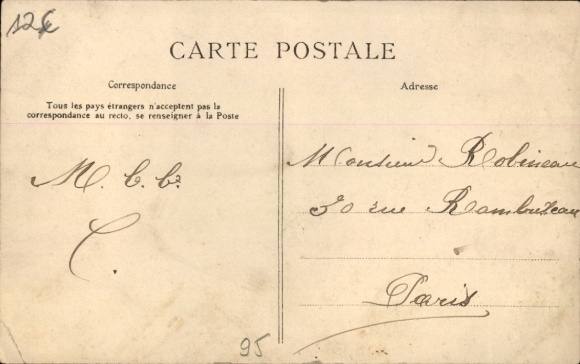 12€
CARTE POSTALE
Correspondance
Tous les pays étrangers n'acceptent pas la
correspondance au recto, se renseigner à la Poste
M. C. C.
C.
Adresse
Monsieur Robineau
30 rue Rambuteau
Paris
95